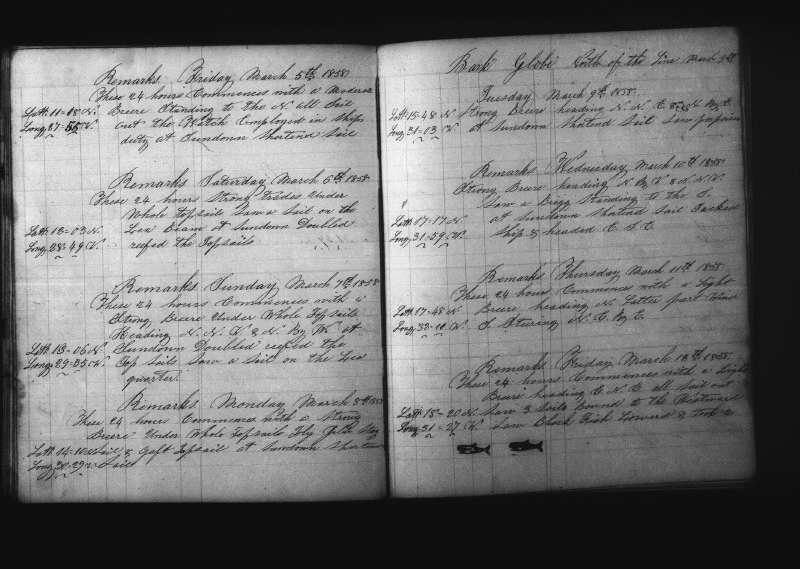 Remarks Friday March 5th 1858
These 24 hours Commences with a Moderate
Latt. 11-18 N. Breeze Standing to the N all Sail
Long 27-55 W. out the Watch Employed in ships
duty at Sundown Shortend sail
Remarks Saturday March 6th 1858
These 24 hours Strong Trades Under
Whole Topsails Saw a Sail on the
Latt 12-03 N Lea Beam at Sundown Doubled
Long 28-49 W. reefed the Topsails
Remarks Sunday March 7th 1858
These 24 hours Commences with a
Strong Breeze Under Whole Topsails
Heading N. N. W & N. By W. at
Latt 13-06 N Sundown Doubled reefed the
Long 29-35 W. Top sails saw a sail on the Lea
quarter.
Remarks Monday March 8th 1858
These 24 hours Commences with a Strong
Breeze Under Whole Topsails Fly Jib Stay
Latt 14-10 N Sail & Gaft Topsail at Sundown Shortend
Long 30-29 W Sail
Bark Globe North of the Line March 9th
Tuesday March 9th 1858
Latt 15-48 N Strong Breeze heading N. N. E & N By E
Long 31-03 W at Sundown Shortend Sail Saw
Remarks Wednesday March 10th 1858
Strong Breeze heading N. By W & N. N. W.
Saw a Brigg Standing to the S.
Latt 17-17 N at Sundown Shortend Sail Tacked
Long 31-59 W. Ship & headed E. S. E
Remarks Thursday March 11th 1858
These 24 hours Commences with a Light
Latt 17-48 N Breeze heading N. Latter part Wind
Long 32-10 W. S Stearing N. E. By E.
Remarks Friday March 12th 1858
These 24 hours Commences with a Light
Breeze heading E. N. E. all sail out
Latt 18-20 N Saw 3 Sails Bound to the Westward
Long 31-27 W. Saw Black Fish Lowerd & Took 2